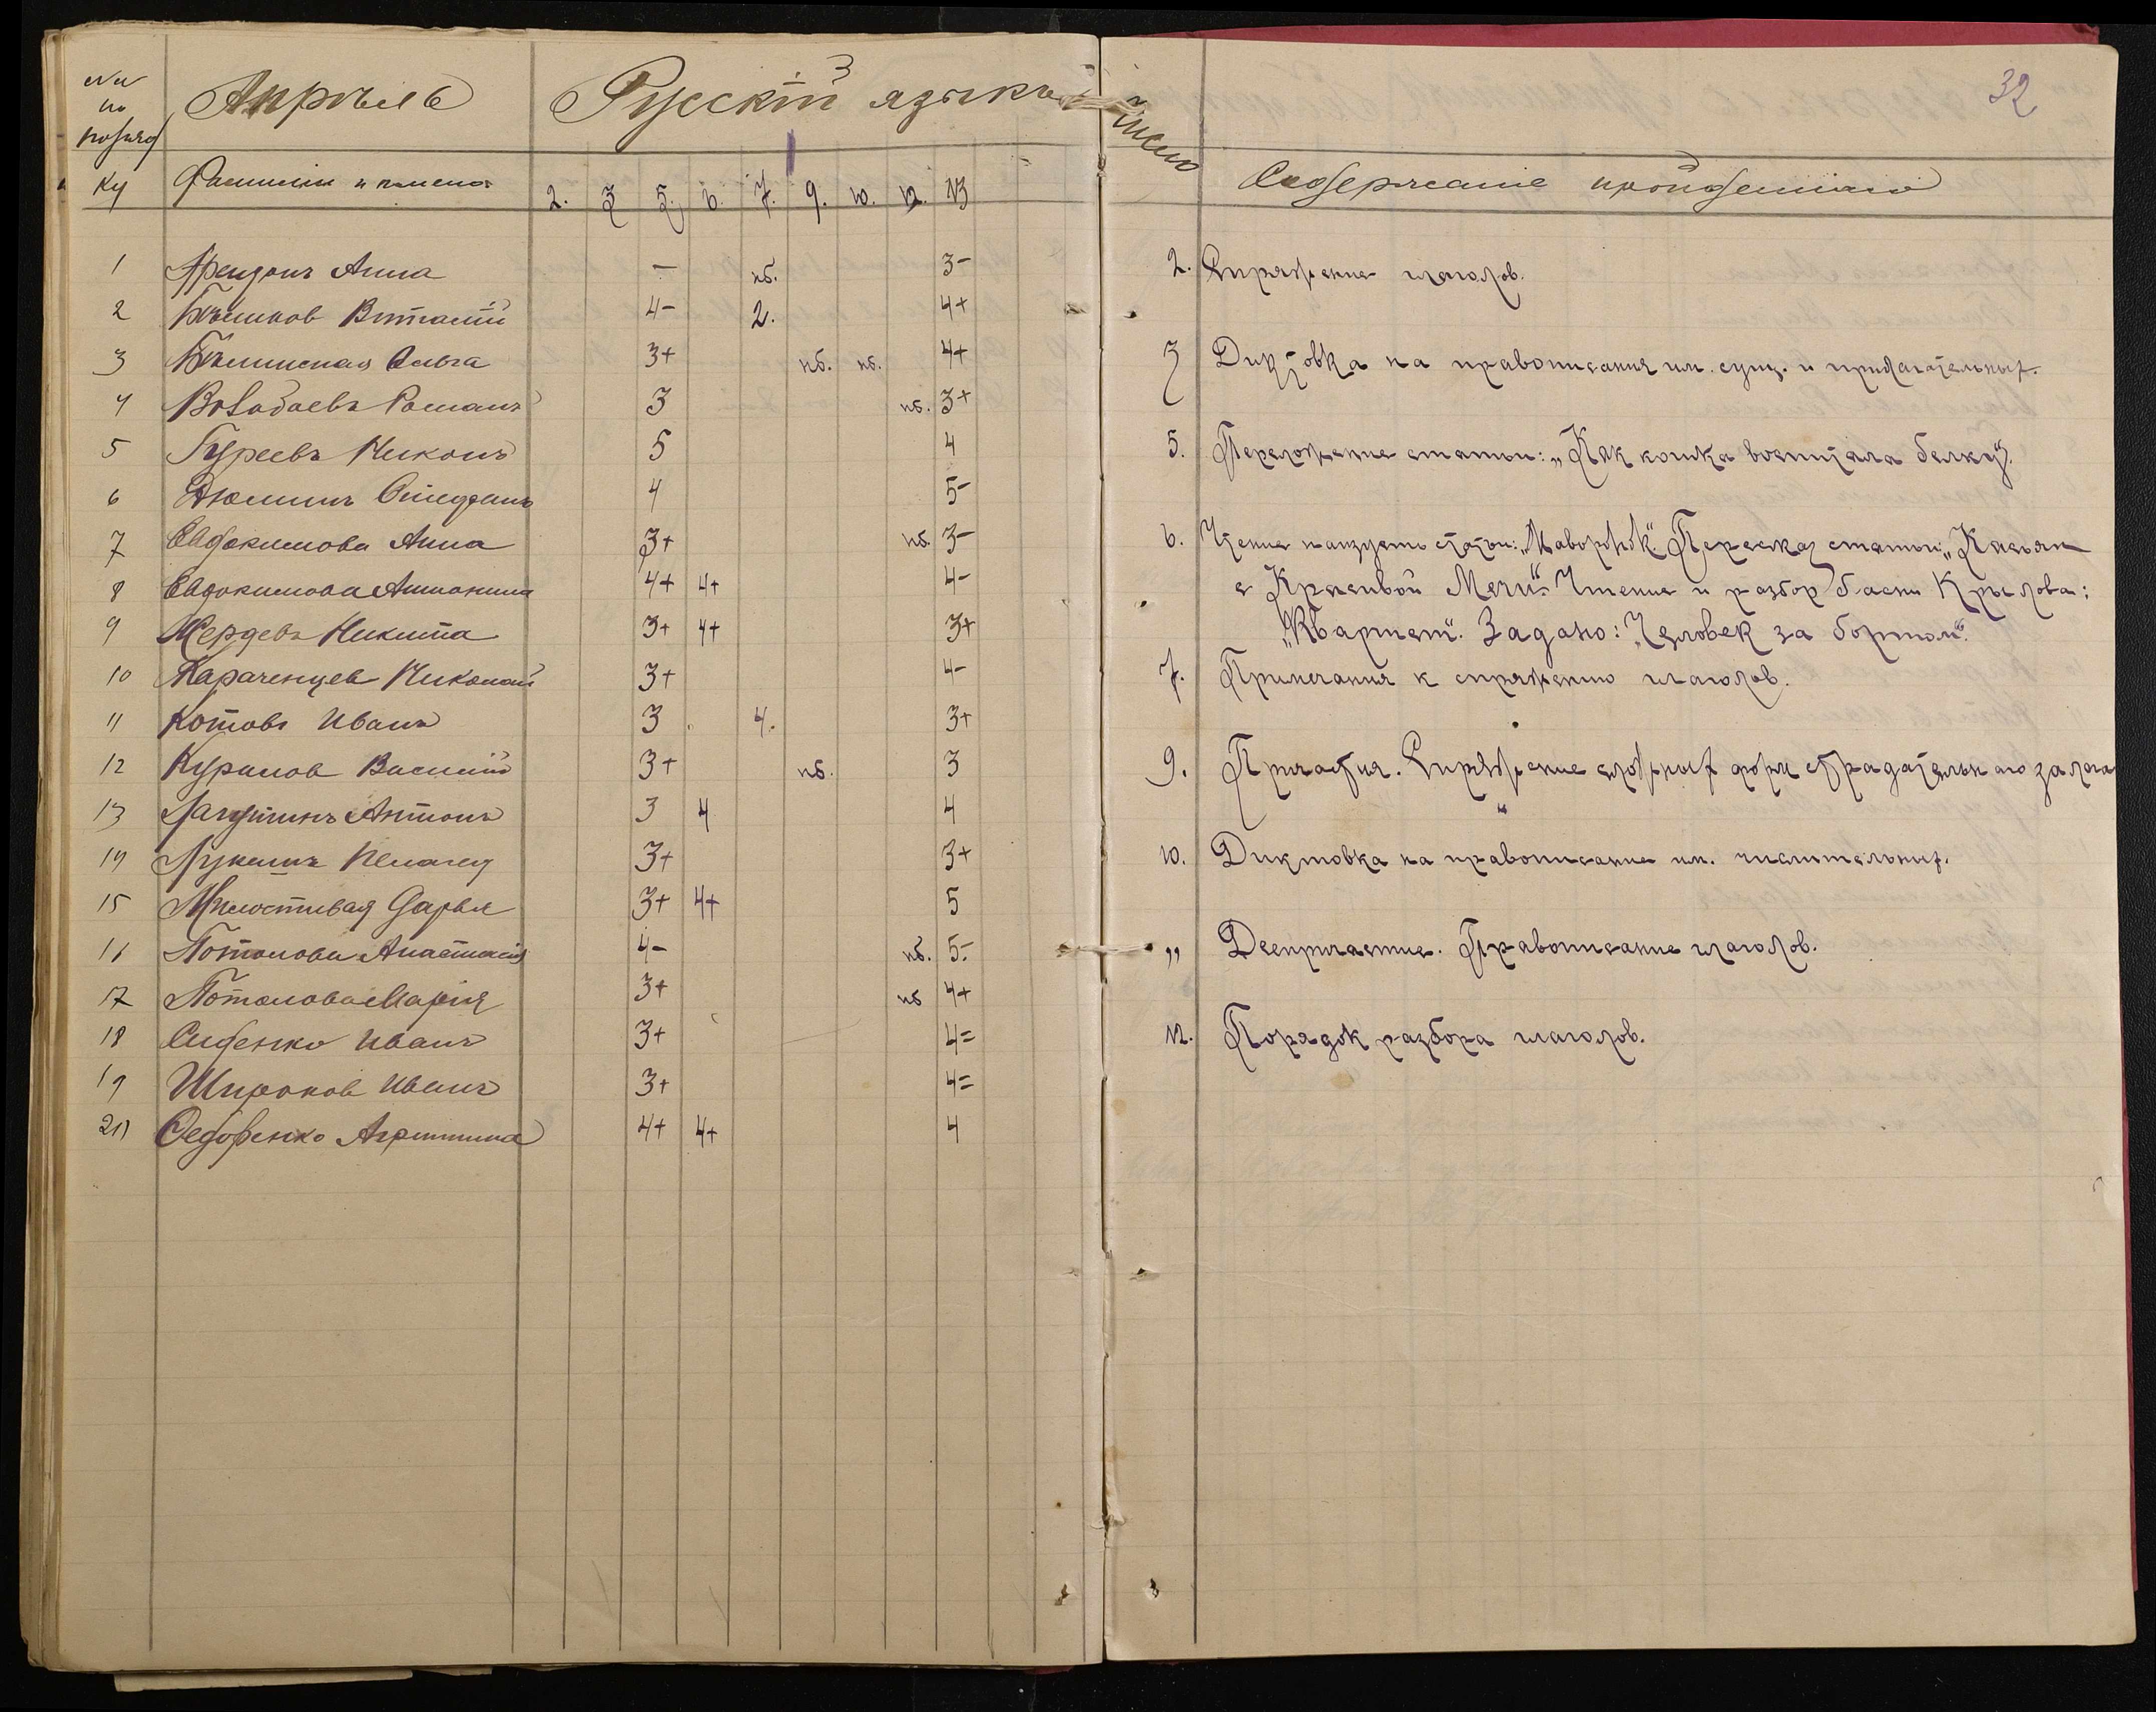 №№ по порядку
Апрѣль
Русскій языкъ
Число
32
Фамилии и имена
2. 3 5. 6. 7. 9. 10. 12. 13
Содержаніе пройденнаго
1 Арендонъ Анна — нб. 3-
2 Бѣликов Виталій 4- 2. 4+
3 Бѣлинская Ольга 3+ нб. нб. 4+
4 Романъ 3 нб. 3+
5 Гуреевъ Никонъ 5 4
6 Дюминъ 4 5-
7 Евдокимова Анна 3+ нб. 3-
8 Евдокимова Антонина 4+ 4+ 4-
9 Жердевъ Никита 3+ 4+ 3+
10 Караченцев Николай 3+ 4-
11 Котовъ Иванъ 3 4. 3+
12 Курилов Василій 3+ нб. 3
13 Лагутинъ Антонъ 3 4 4
14 Лукашъ Пелагея 3+ 3+
15 Милостивая Дарья 3+ 4+ 5
16 Потолова Анастасія 4- нб. 5-
17 Потолова Марія 3+ нб 4+
18 Сиденко Иванъ 3+ 4=
19 Широков Иванъ 3+ 4=
20 Федоренко Агриппина 4+ 4+ 4
2. Спряжение глаголов.
3 Диктовка на правописания им. сущ. и прилагательных.
5. Переложение статьи: „Как кошка воспитала белку".
6. Чтение наизусть статьи: Пересказ статьи: „Касьян
с Красивой Мечи". Чтение и разбор басни Крылова:
„Квартет". Задано: „Человек за бортом".
7. Примечания к спряжению глаголов.
9. Причастия. Спряжение сложных форм страдательного залога
10. Диктовка на правописание им. числительных.
„ Деепричастие. Правописание глаголов.
12. Порядок разбора глаголов.